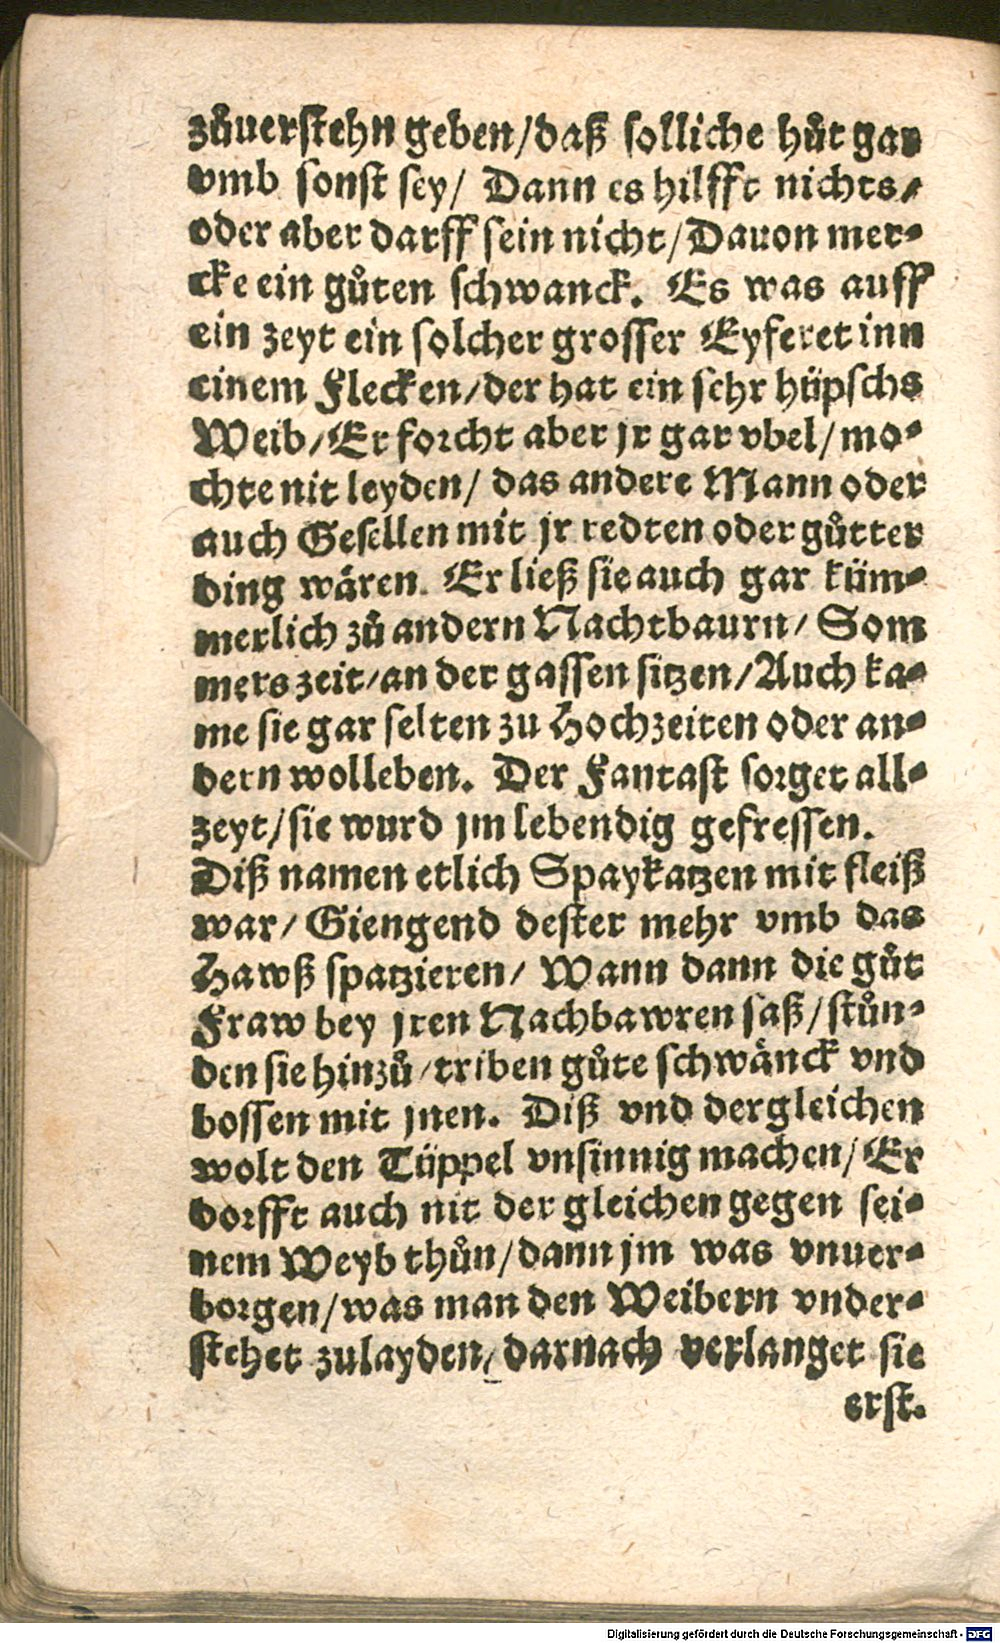 zůuerstehn geben/daß solliche hůt gar
vmb sonst sey/ Dann es hilfft nichts/
oder aber darff sein nicht/Dauon mer-
cke ein gůten schwanck. Es was auff
ein zeyt ein solcher grosser Eyferet inn
einem Flecken/der hat ein sehr hüpschs
Weib/Er forcht aber jr gar vbel/mo-
chte nit leyden/ das andere Mann oder
auch Gesellen mit jr redten oder gůtter
ding wären. Er ließ sie auch gar küm-
merlich zů andern Nachtbaurn/ Som
mers zeit/an der gassen sitzen/Auch ka-
me sie gar selten zu Hochzeiten oder an-
dern wolleben. Der Fantast sorget all-
zeyt/sie wurd jm lebendig gefressen.
Diß namen etlich Spaykatzen mit fleiß
war/ Giengend dester mehr vmb das
Hawß spatzieren/ Wann dann die gůt
Fraw bey jren Nachbawren saß/stůn-
den sie hinzů/triben gůte schwänck vnd
bossen mit jnen. Diß vnd dergleichen
wolt den Tüppel vnsinnig machen/Er
dorfft auch nit der gleichen gegen sei-
nem Weyb thůn/dann jm was vnuer-
borgen/was man den Weibern vnder-
stehet zulayden/darnach verlanget sie
erst.
Digitalisierung gefördert durch die Deutsche Forschungsgemeinschaft - DFG